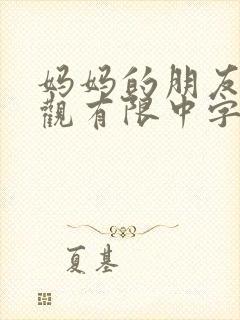 妈妈的朋友
觀有限中字
夏基